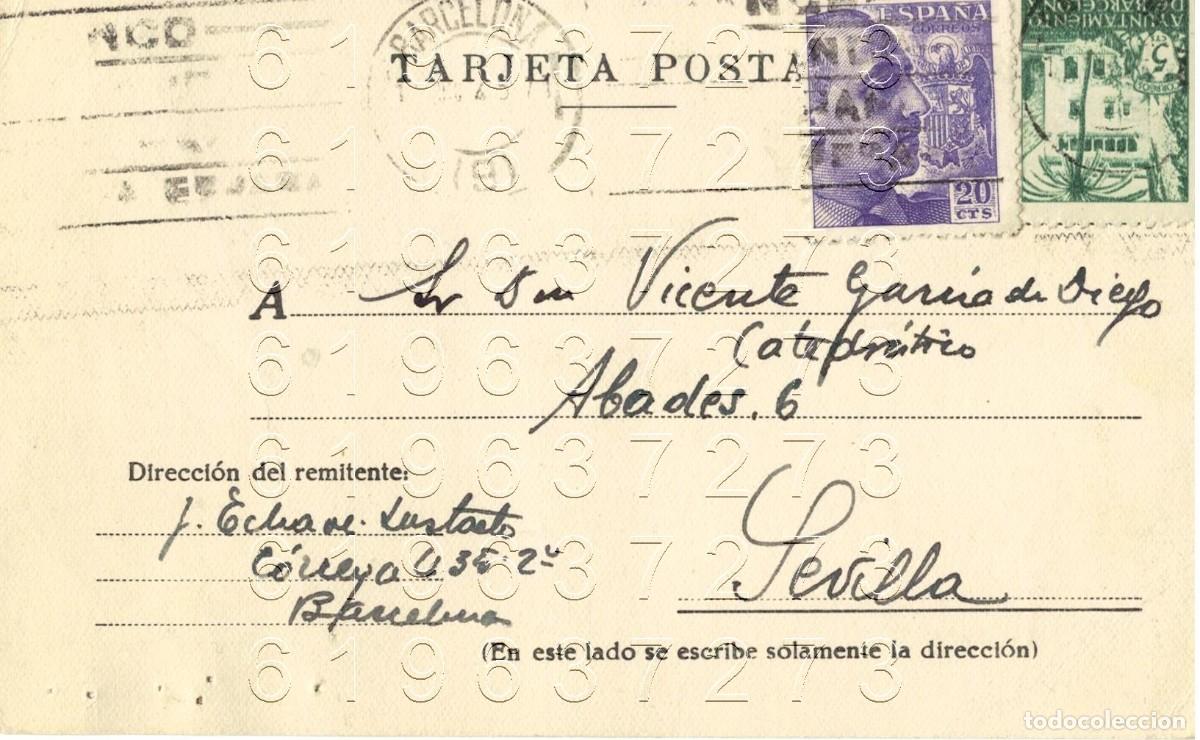 NCO
BARCELONA
TARJETA POSTAL
ESPAÑA
CORREOS
20
CTS
AYUNTAMIENTO
DE BARCELONA
5
A Sr Don Vicente García de Diego
Catedrático
Abades. 6
Dirección del remitente:
J. Echave-Sustaeta
Barcelona
Sevilla
(En este lado se escribe solamente la dirección)
619637273
619637273
619637273
619637273
619637273
619637273
619637273
todocoleccion